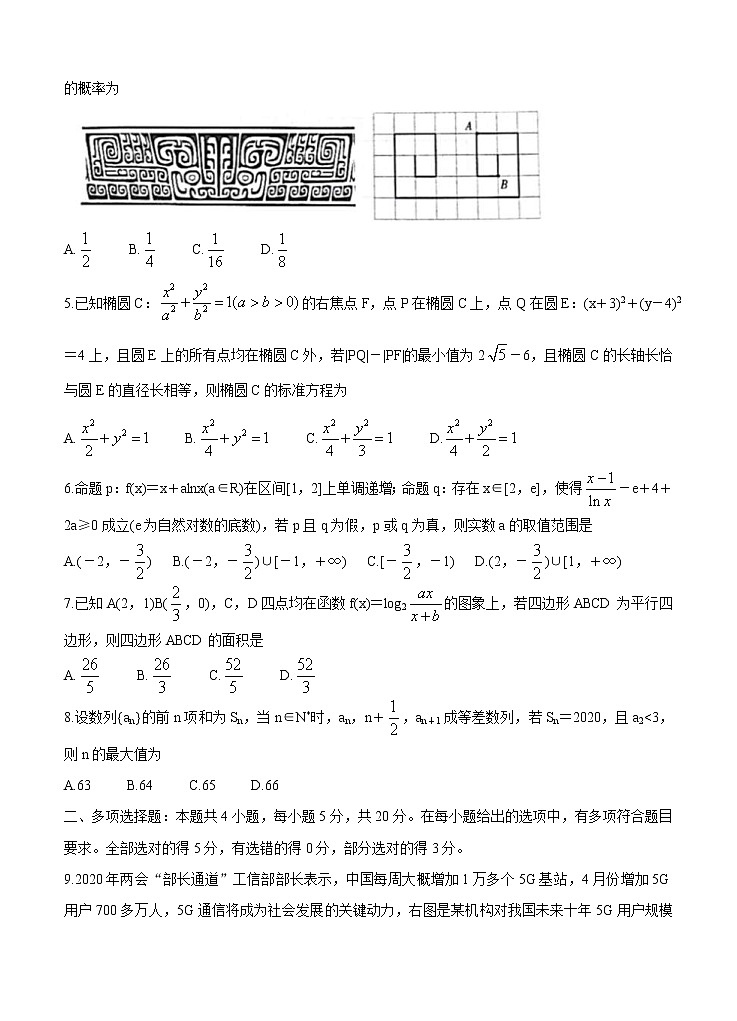 的概率为
A
B
A. 1/2 B. 1/4 C. 1/16 D. 1/8
5.已知椭圆C：x²/a²+y²/b²=1(a>b>0)的右焦点F，点P在椭圆C上，点Q在圆E：(x+3)²+(y－4)²
＝4上，且圆E上的所有点均在椭圆C外，若|PQ|－|PF|的最小值为2√5－6，且椭圆C的长轴长恰
与圆E的直径长相等，则椭圆C的标准方程为
A. x²/2+y²=1 B. x²/4+y²=1 C. x²/4+y²/3=1 D. x²/4+y²/2=1
6.命题p：f(x)＝x＋alnx(a∈R)在区间[1，2]上单调递增；命题q：存在x∈[2，e]，使得(x−1)/ln x－e＋4＋
2a≥0成立(e为自然对数的底数)，若p且q为假，p或q为真，则实数a的取值范围是
A.(－2，－3/2) B.(－2，－3/2)∪[－1，＋∞) C.[－3/2，－1) D.(2，－3/2)∪[1，＋∞)
7.已知A(2，1)B(2/3，0)，C，D四点均在函数f(x)＝log₂ ax/(x+b)的图象上，若四边形ABCD为平行四
边形，则四边形ABCD的面积是
A. 26/5 B. 26/3 C. 52/5 D. 52/3
8.设数列{aₙ}的前n项和为Sₙ，当n∈N*时，aₙ，n＋1/2，aₙ₊₁成等差数列，若Sₙ＝2020，且a₂<3，
则n的最大值为
A.63 B.64 C.65 D.66
二、多项选择题：本题共4小题，每小题5分，共20分。在每小题给出的选项中，有多项符合题目
要求。全部选对的得5分，有选错的得0分，部分选对的得3分。
9.2020年两会“部长通道”工信部部长表示，中国每周大概增加1万多个5G基站，4月份增加5G
用户700多万人，5G通信将成为社会发展的关键动力，右图是某机构对我国未来十年5G用户规模